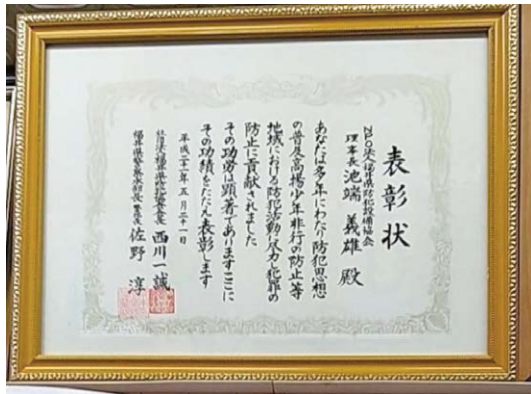 表彰状
NPO法人福井県防犯設備協会
理事長 池端 義雄 殿
あなたは多年にわたり防犯思想
の普及高揚少年非行の防止等
地域における防犯活動に尽力し犯罪の
防止に貢献されました
その功労は顕著でありますここに
その功績をたたえ表彰します
平成二十一年五月二十一日
社団法人福井県防犯協会会長 西川一誠
福井県警察本部長 佐野 淳